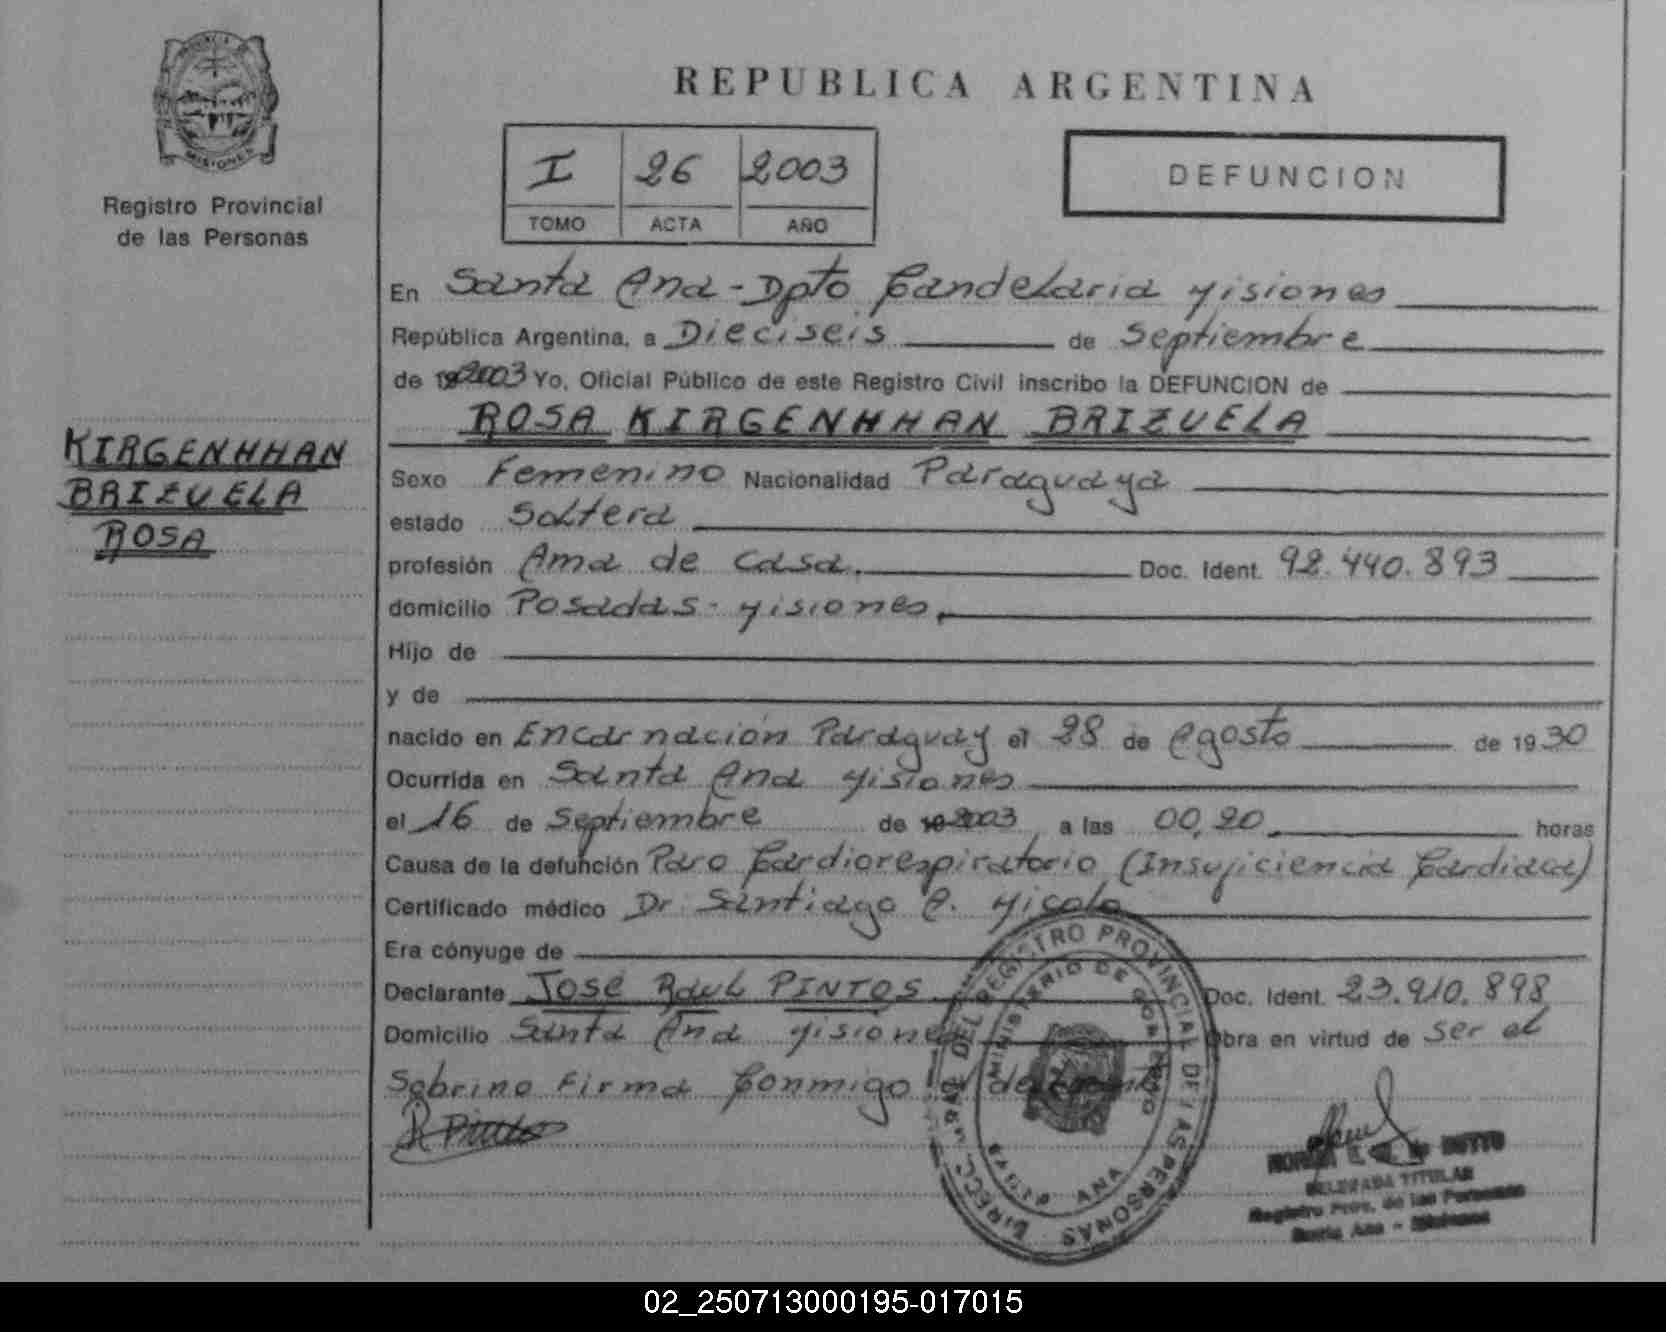 PROVINCIA DE
MISIONES
Registro Provincial
de las Personas
KIRGENHHAN
BRIZUELA
ROSA
REPUBLICA ARGENTINA
I 26 2003
TOMO ACTA AÑO
DEFUNCION
En Santa Ana - Dpto Candelaria Misiones
República Argentina, a Dieciseis de Septiembre
de 2003 Yo, Oficial Público de este Registro Civil inscribo la DEFUNCION de
ROSA KIRGENHHAN BRIZUELA
Sexo Femenino Nacionalidad Paraguaya
estado Soltera
profesión Ama de Casa. Doc. Ident. 92.440.893
domicilio Posadas - Misiones.
Hijo de
y de
nacido en Encarnación Paraguay el 28 de Agosto de 1930
Ocurrida en Santa Ana Misiones
el 16 de Septiembre de 2003 a las 00,20 horas
Causa de la defunción Paro Cardiorespiratorio (Insuficiencia Cardiaca)
Certificado médico Dr. Santiago A. Micolo
Era cónyuge de
Declarante José Raul PINTOS Doc. Ident. 23.910.898
Domicilio Santa Ana Misiones Obra en virtud de ser el
Sobrino Firma Conmigo
R Pintos
DIRECC. GRAL. DEL REGISTRO PROVINCIAL DE LAS PERSONAS
MINISTERIO DE GOBIERNO
SANTA ANA
DELEGADA TITULAR
Registro Prov. de las Personas
Santa Ana - Misiones
02_250713000195-017015